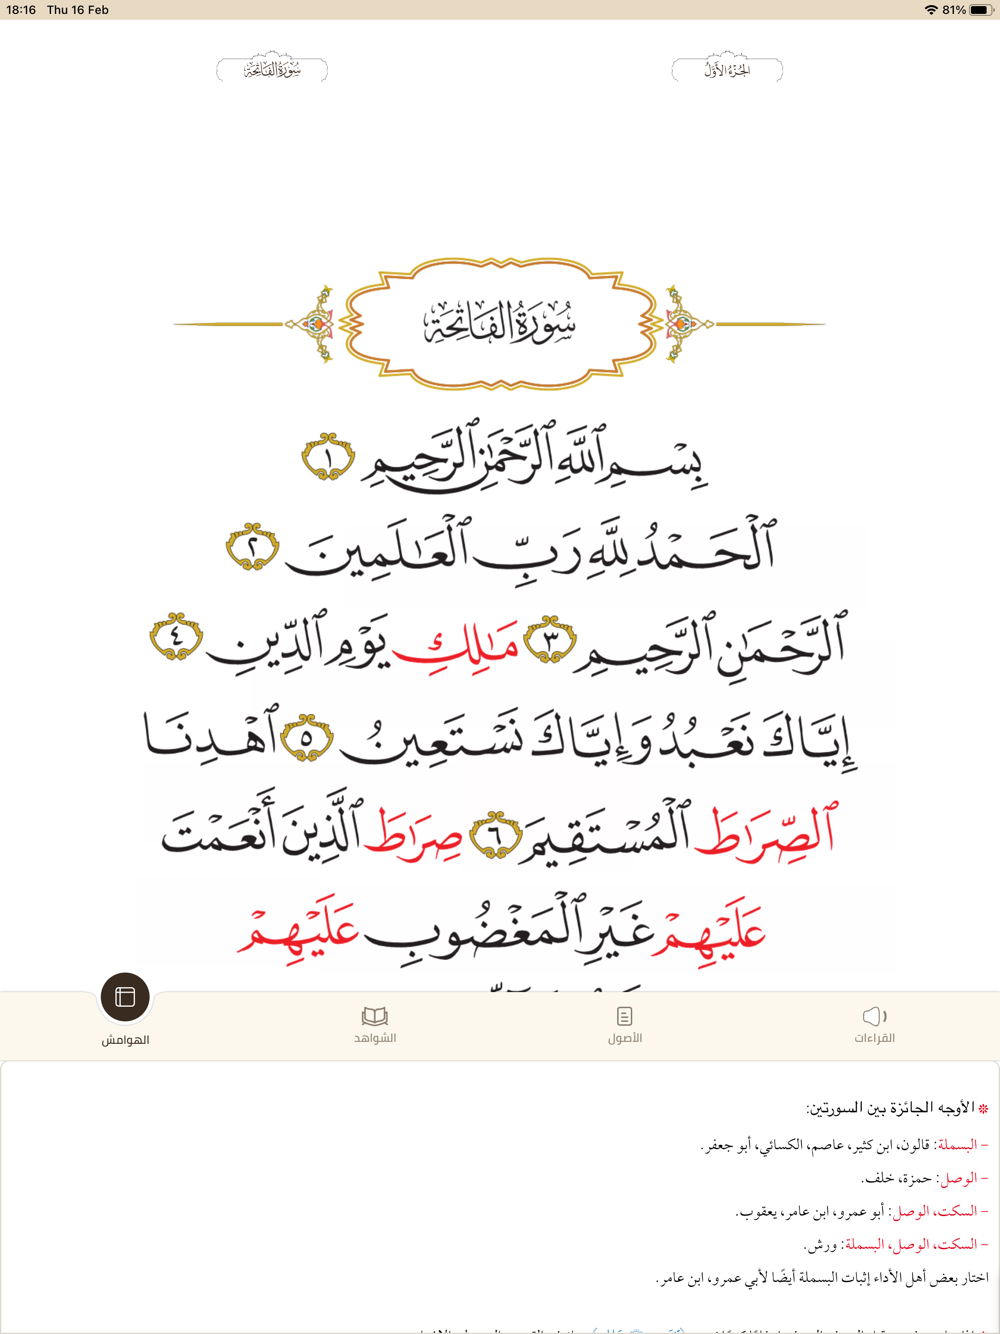 18:16 Thu 16 Feb 81%
الجُزْءُ الأَوَّلُ
سُورَةُ الفَاتِحَةِ
سُورَةُ الفَاتِحَةِ
بِسْمِ ٱللَّهِ ٱلرَّحْمَٰنِ ٱلرَّحِيمِ ١
ٱلْحَمْدُ لِلَّهِ رَبِّ ٱلْعَٰلَمِينَ ٢
ٱلرَّحْمَٰنِ ٱلرَّحِيمِ ٣ مَٰلِكِ يَوْمِ ٱلدِّينِ ٤
إِيَّاكَ نَعْبُدُ وَإِيَّاكَ نَسْتَعِينُ ٥ ٱهْدِنَا
ٱلصِّرَٰطَ ٱلْمُسْتَقِيمَ ٦ صِرَٰطَ ٱلَّذِينَ أَنْعَمْتَ
عَلَيْهِمْ غَيْرِ ٱلْمَغْضُوبِ عَلَيْهِمْ
القراءات الأصول الشواهد الهوامش
❊ الأوجه الجائزة بين السورتين:
– البسملة: قالون، ابن كثير، عاصم، الكسائي، أبو جعفر.
– الوصل: حمزة، خلف.
– السكت، الوصل: أبو عمرو، ابن عامر، يعقوب.
– السكت، الوصل، البسملة: ورش.
اختار بعض أهل الأداء إثبات البسملة أيضًا لأبي عمرو، ابن عامر.